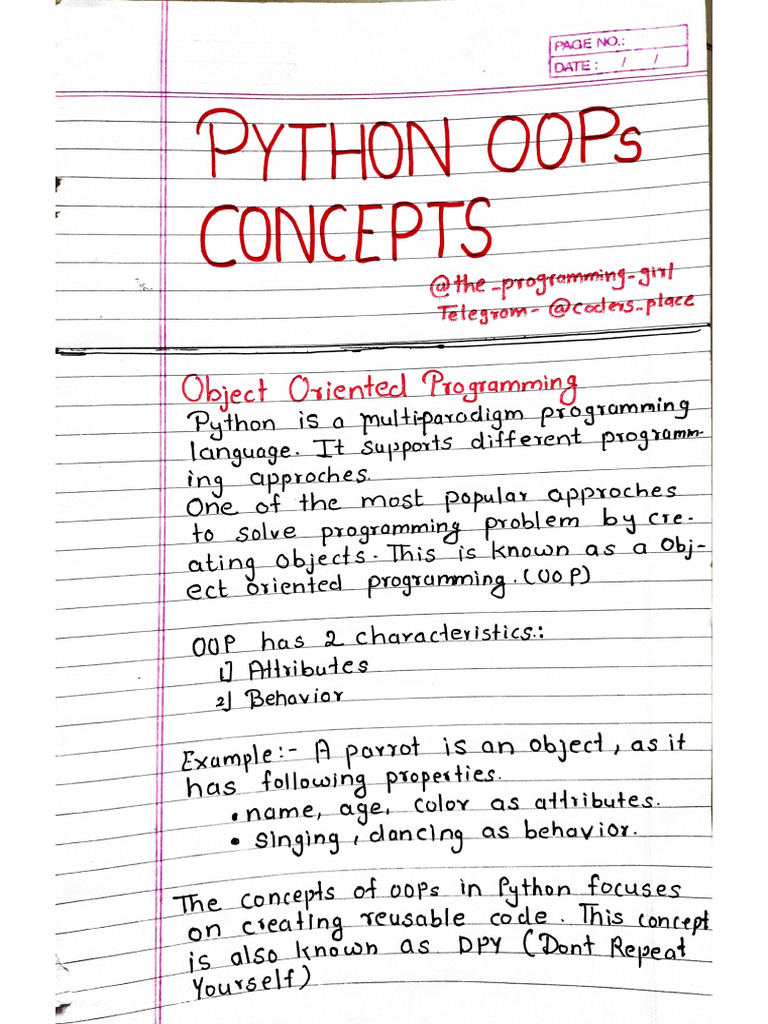 PAGE NO.:
DATE: / /
PYTHON OOPs
CONCEPTS
@the_programming_girl
Telegram- @coders_place
Object Oriented Programming
Python is a multi-paradigm programming
language. It supports different programm-
ing approches.
One of the most popular approches
to solve programming problem by cre-
ating objects. This is known as a Obj-
ect oriented programming. (OOP)
OOP has 2 characteristics.:
1) Attributes
2) Behavior
Example:- A parrot is an object, as it
has following properties.
• name, age, color as attributes.
• singing, dancing as behavior.
The concepts of oops in Python focuses
on creating reusable code. This concept
is also known as DPY (Dont Repeat
Yourself)